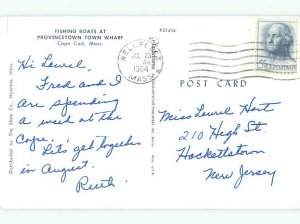 FISHING BOATS AT
PROVINCETOWN TOWN WHARF
Cape Cod, Mass.
P31454
WELLFLEET
JUL
1964
MASS
Hi Laurel,
Fred and I
are spending
a week at the
Cape.
Let's get together
in August.
Ruth
POST CARD
Miss Laurel Hart
210 High St.
Hackettstown
New Jersey
Distributed by The Book Co., Hyannis, Mass.